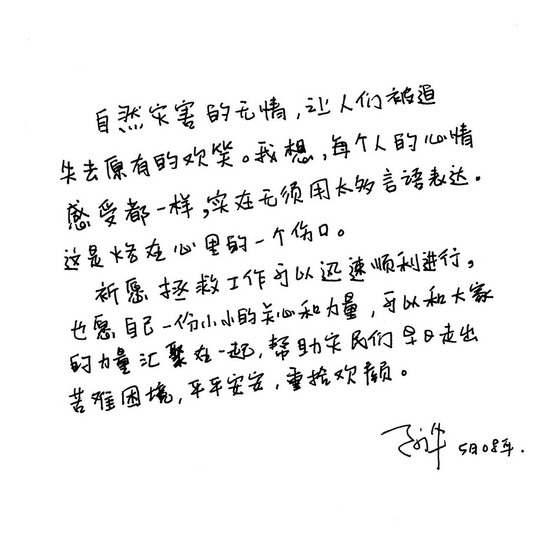 自然灾害的无情，让人们被迫
失去原有的欢笑。我想，每个人的心情
感受都一样，实在无须用太多言语表达。
这是烙在心里的一个伤口。
祈愿拯救工作可以迅速顺利进行，
也愿自己一份小小的关心和力量，可以和大家
的力量汇聚在一起，帮助灾民们早日走出
苦难困境，平平安安，重拾欢颜。
5月08年.